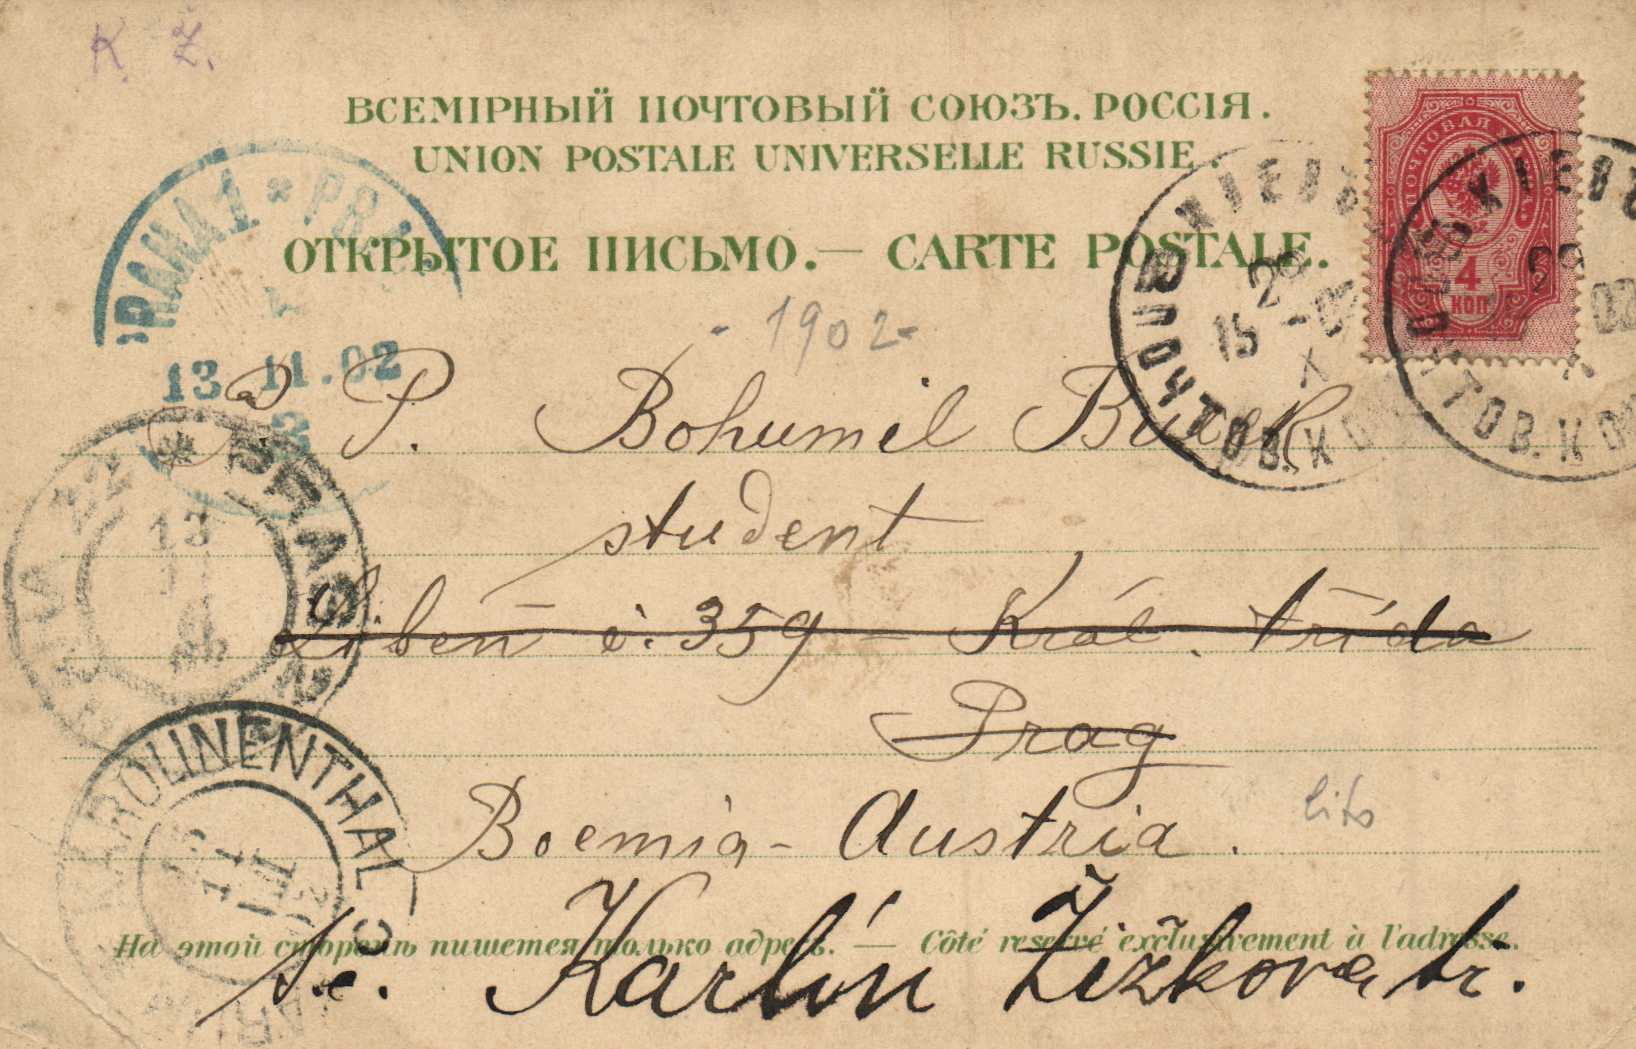 K. Ž.
ВСЕМІРНЫЙ ПОЧТОВЫЙ СОЮЗЪ. РОССІЯ.
UNION POSTALE UNIVERSELLE RUSSIE.
ОТКРЫТОЕ ПИСЬМО.— CARTE POSTALE.
PRAHA 1 * PRAG
13 11.02
КІЕВЪ
15 X
ПОЧТОВ. КОН
ПОЧТОВАЯ
4
КОП
КІЕВЪ
29
ПОЧТОВ. КОН
- 1902 -
P. Bohumil
student
Libeň č. 359 – Král. třída
Prag
Boemia - Austria.
lito
PRAG
13
KAROLINENTHAL 3
На этой сторонѣ пишется только адресъ. — Côté reservé exclusivement à l'adresse.
Karlín Žižkova tř.